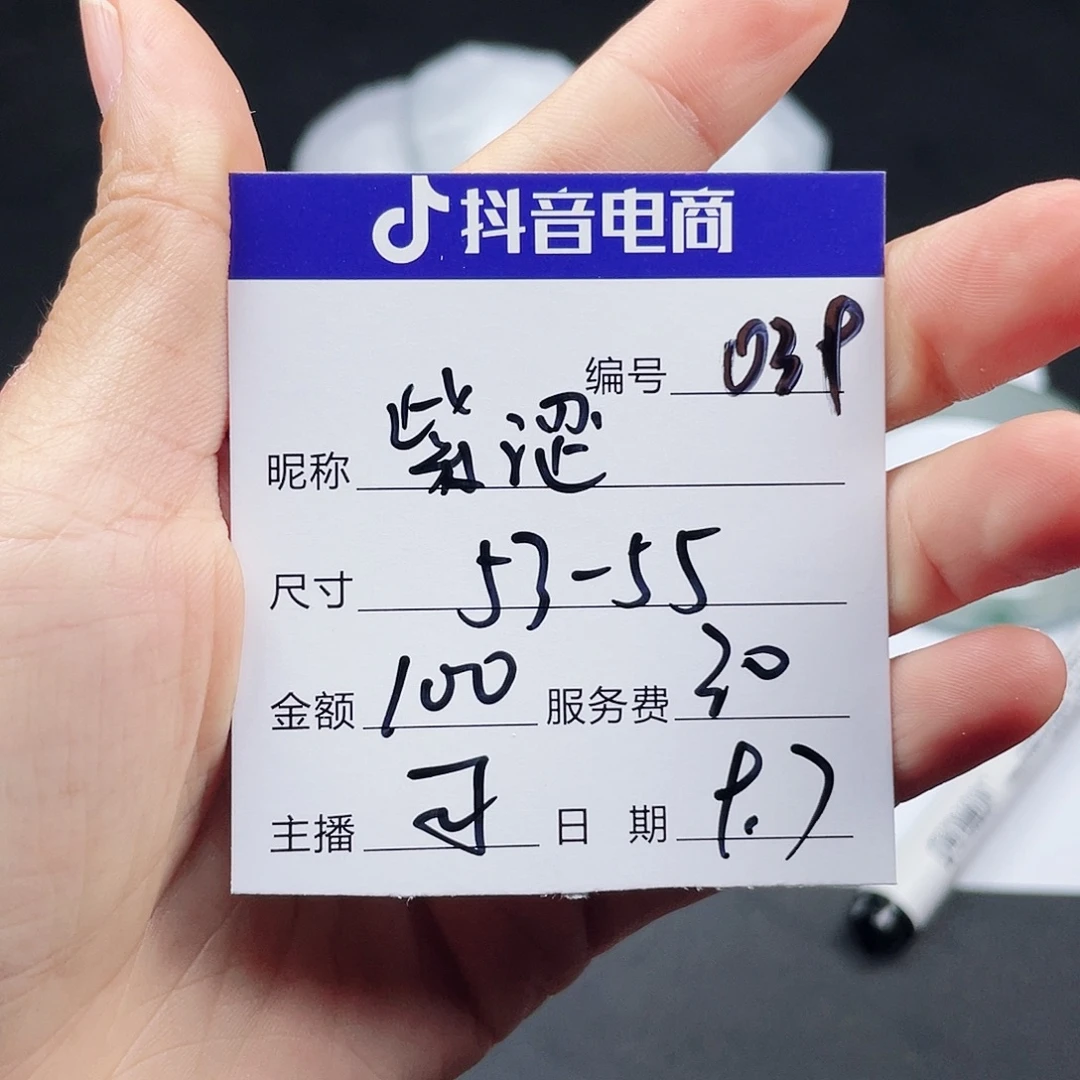 抖音电商
编号 039
昵称 紫涩
尺寸 53-55
金额 100 服务费 30
主播 日期 9.7